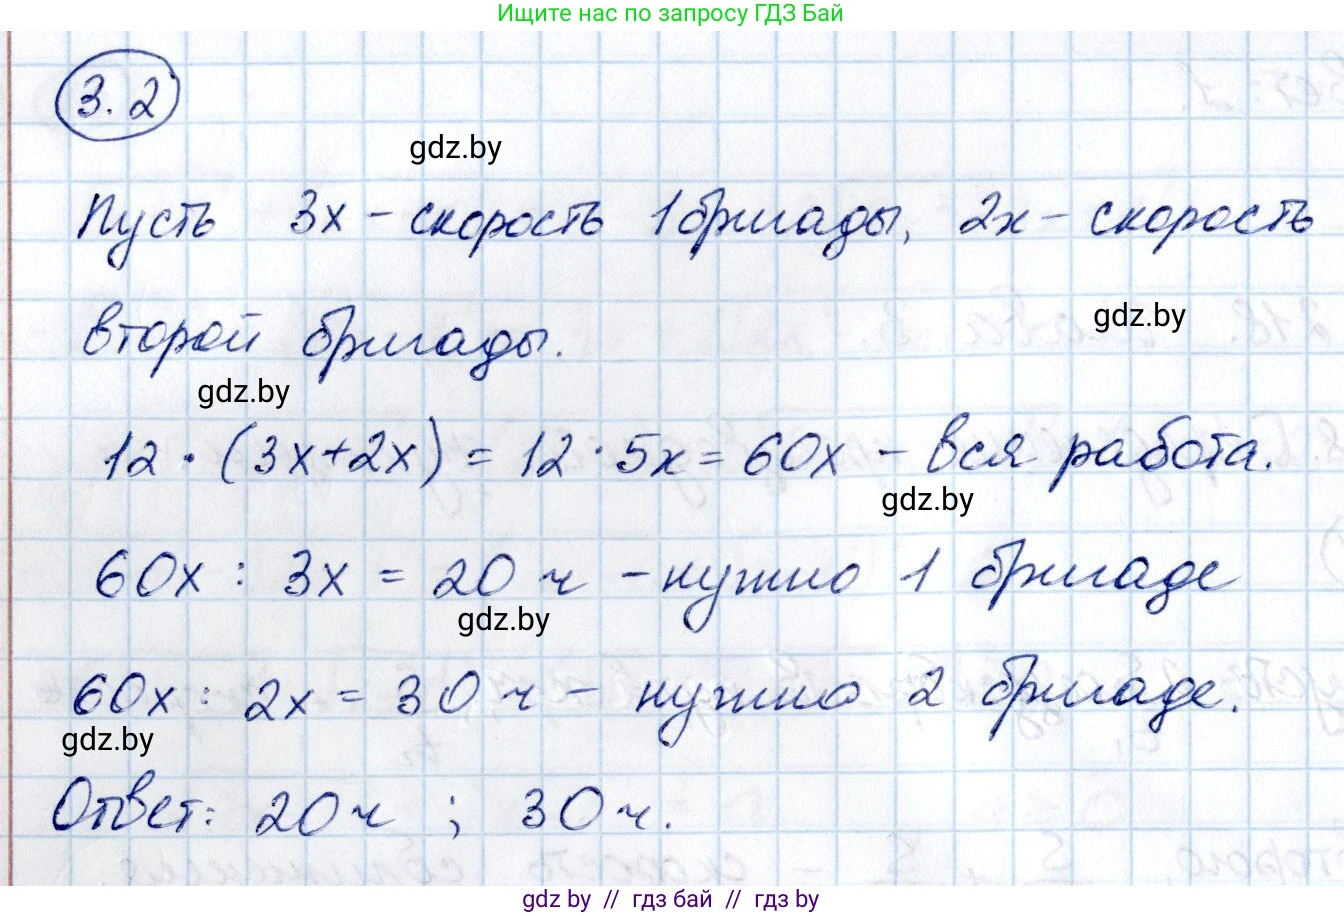 Ищите нас по запросу ГДЗ Бай
3.2
gdz.by
Пусть 3х – скорость 1 бригады, 2х – скорость
gdz.by
второй бригады.
gdz.by
12 · (3х+2х) = 12 · 5х = 60х – вся работа.
gdz.by
60х : 3х = 20 ч – нужно 1 бригаде
gdz.by
60х : 2х = 30 ч – нужно 2 бригаде.
gdz.by
Ответ: 20 ч ; 30 ч.
gdz by // гдз бай // гдз by